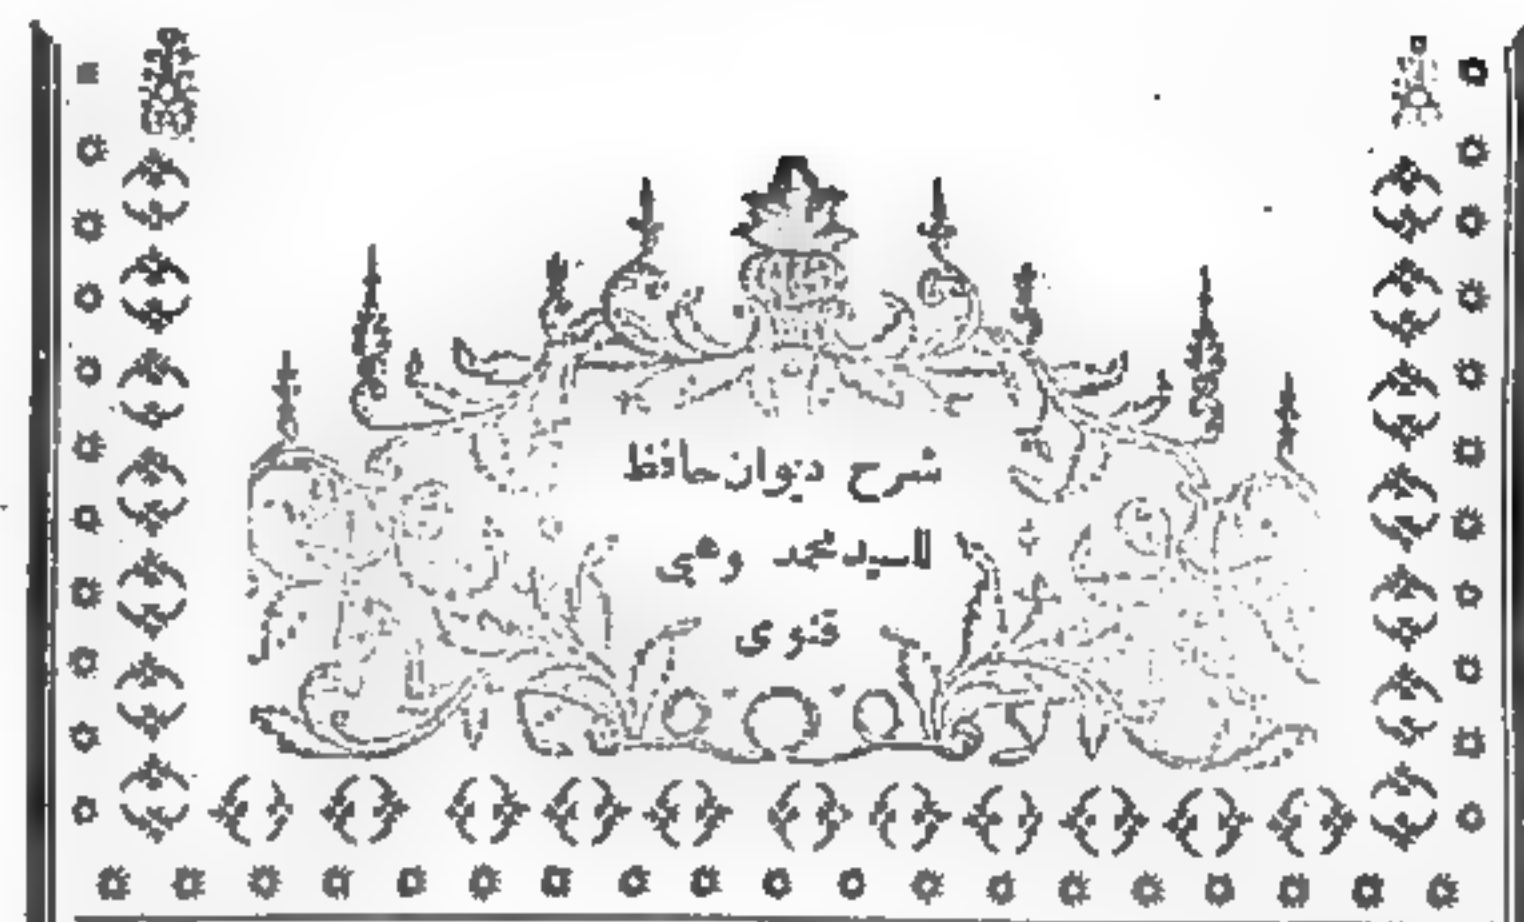 شرح ديوان حافظ
للسيد محمد وهبى
قنوى